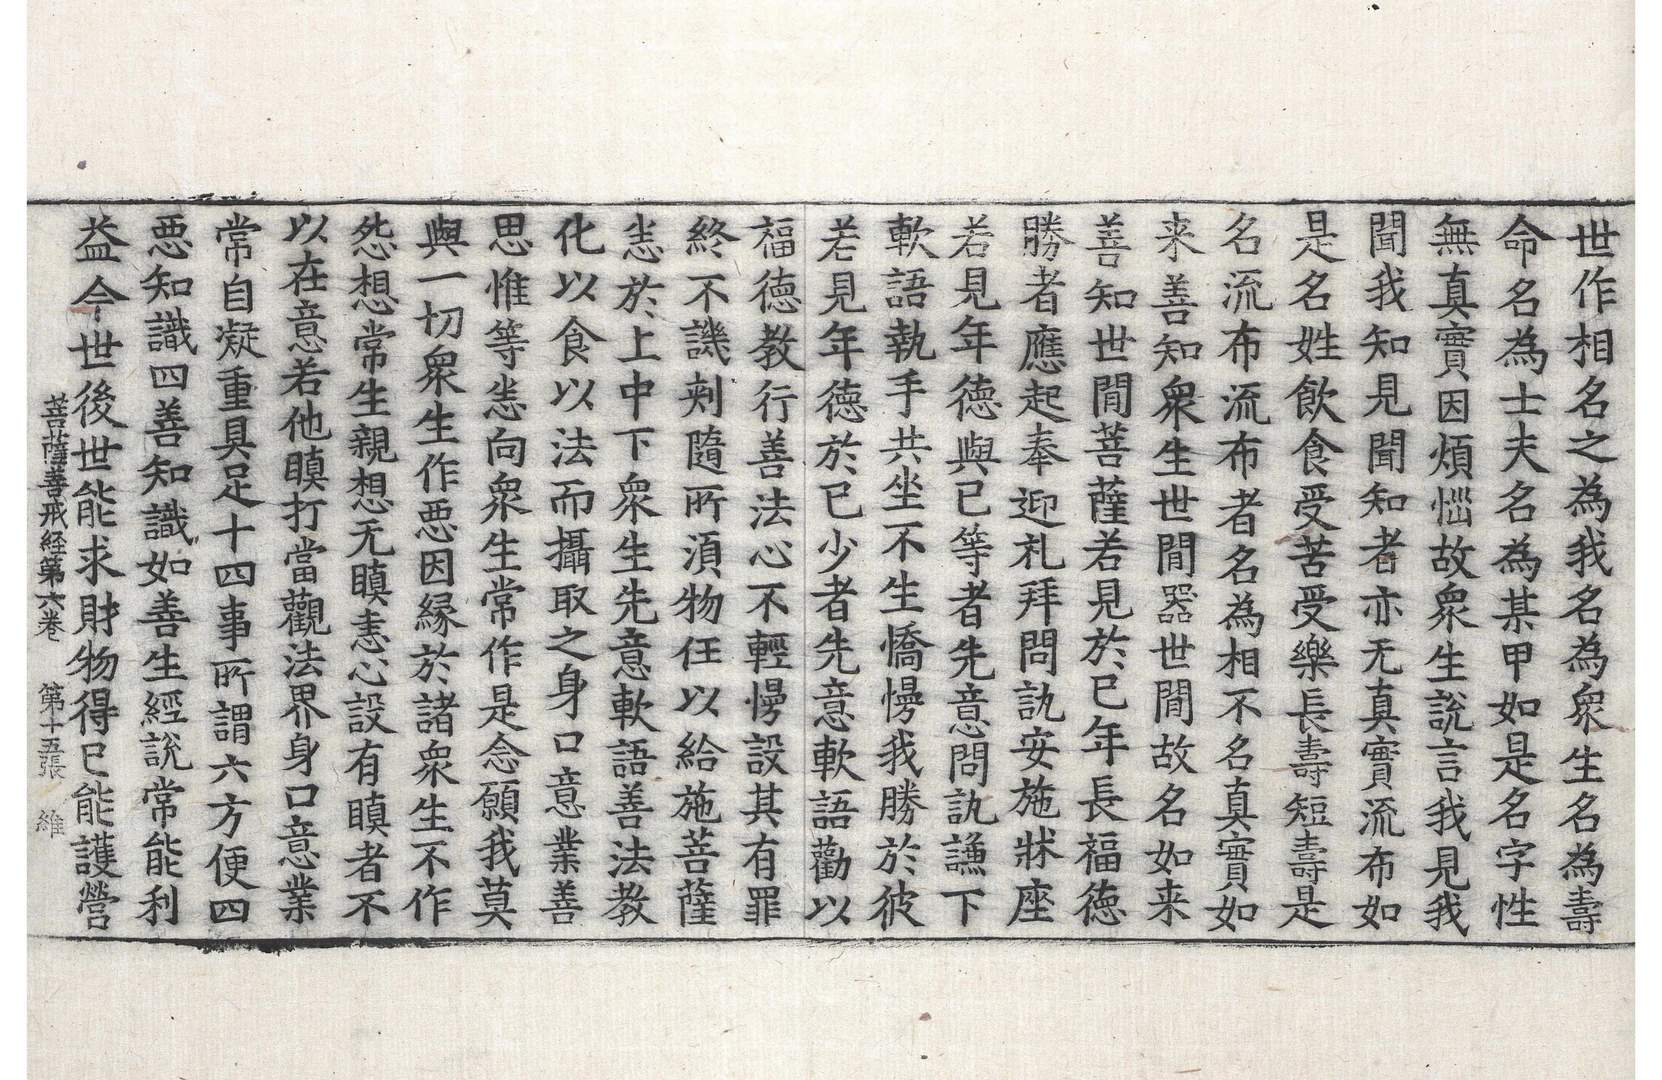 世作相名之為我名為衆生名為壽
命名為士夫名為某甲如是名字性
無真實因煩惱故衆生說言我見我
聞我知見聞知者亦无真實流布如
是名姓飲食受苦受樂長壽短壽是
名流布流布者名為相不名真實如
来善知衆生世間器世間故名如来
善知世間菩薩若見於已年長福德
勝者應起奉迎礼拜問訊安施牀座
若見年德與已等者先意問訊謙下
軟語執手共坐不生憍慢我勝於彼
若見年德於已少者先意軟語勸以
福德教行善法心不輕慢設其有罪
終不譏刺隨所湏物任以給施菩薩
恙於上中下衆生先意軟語善法教
化以食以法而攝取之身口意業善
思惟等恙向衆生常作是念願我莫
與一切衆生作惡因縁於諸衆生不作
怨想常生親想无瞋恚心設有瞋者不
以在意若他瞋打當觀法界身口意業
常自凝重具足十四事所謂六方便四
惡知識四善知識如善生經說常能利
益今世後世能求財物得已能護營
菩薩善戒経第六卷 第十五張 維